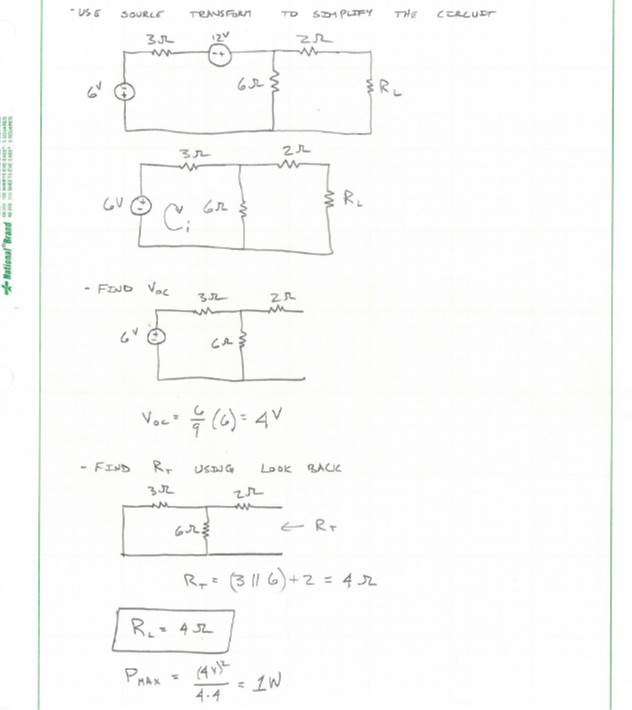 - USE SOURCE TRANSFORM TO SIMPLIFY THE CIRCUIT
3Ω 12V 2Ω
- +
6V - + 6Ω RL
3Ω 2Ω
6V + - i 6Ω RL
- FIND VOC
3Ω 2Ω
6V + - 6Ω
VOC = 6/9 (6) = 4V
- FIND RT USING LOOK BACK
3Ω 2Ω
6Ω ← RT
RT = (3 || 6) + 2 = 4Ω
RL = 4Ω
PMAX = (4V)²/4·4 = 1W
National® Brand